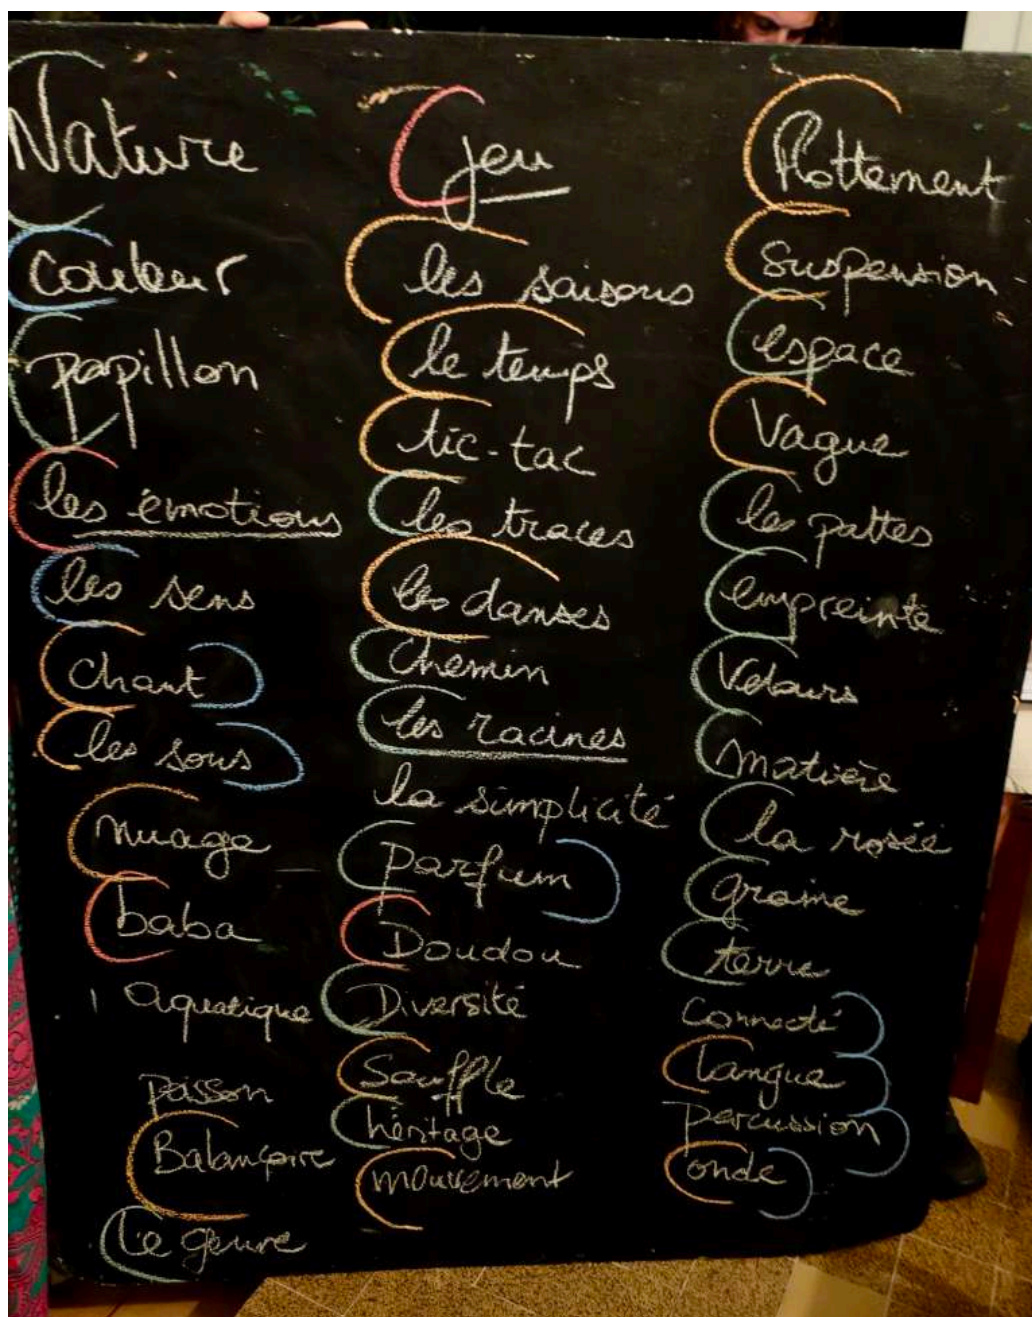 Nature
couleur
papillon
les émotions
les sens
chant
les sons
nuage
baba
aquatique
poisson
Balançoire
le genre
jeu
les saisons
le temps
tic-tac
les traces
les danses
Chemin
les racines
la simplicité
parfum
Doudou
Diversité
Souffle
héritage
mouvement
flottement
Suspension
espace
Vague
les pattes
empreinte
Velours
matière
la rosée
graine
terre
Connecté
langue
percussion
onde